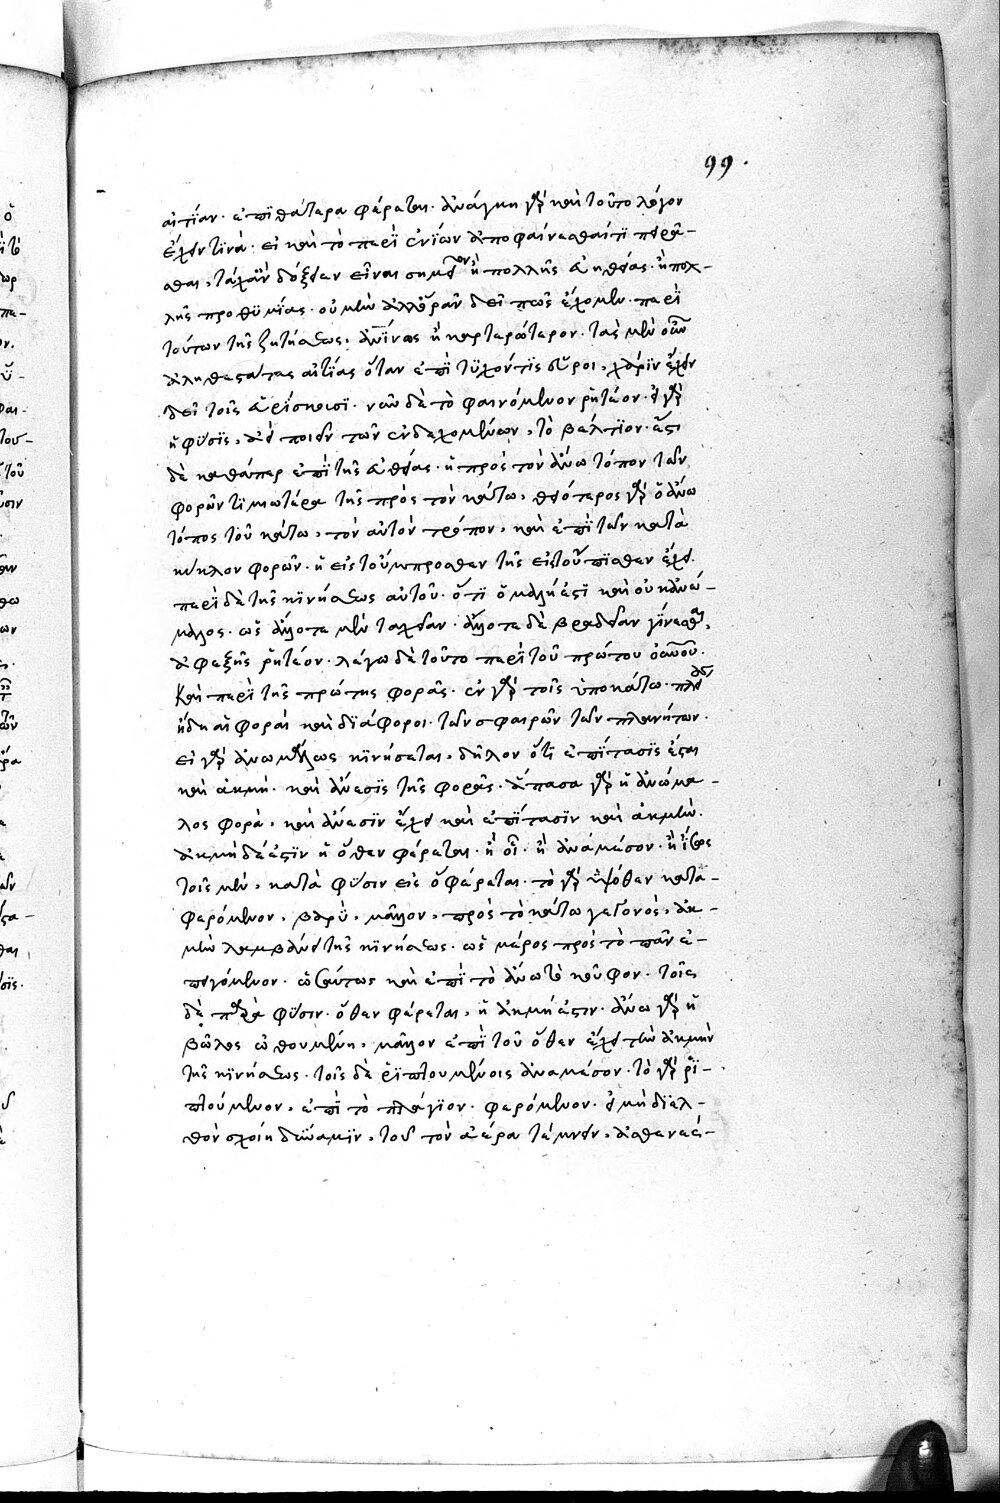 99.
αἰτίαν. ἐπὶ θάτερα φέρεται. ἀνάγκη γὰρ καὶ τοῦτο λόγον
ἔχειν τινά. εἰ καὶ τὸ περὶ ἐνίων ἀποφαίνεσθαί τι πειρᾶ-
σθαι, τάχ' ἂν δόξειεν εἶναι σημεῖον ἢ πολλῆς εὐηθείας. ἢ πολ-
λῆς προθυμίας. οὐ μὴν ἀλλ' ὁρᾶν δεῖ πῶς ἔχομεν. περὶ
τούτων τῆς ζητήσεως, ἀνθρωπίνως ἢ καρτερώτερον. τὰς μὲν οὖν
ἀληθεστάτας αἰτίας ὅταν ἐπιτύχοντις εὕροι, χάριν ἔχειν
δεῖ τοῖς εὑρίσκουσι. νῦν δὲ τὸ φαινόμενον ῥητέον. εἰ γὰρ
ἡ φύσις, ἀεὶ ποιεῖν τῶν ἐνδεχομένων, τὸ βέλτιον. ἔστι
δὲ καθάπερ ἐπὶ τῆς εὐθείας. ἡ πρὸς τὸν ἄνω τόπον τῶν
φορῶν τιμιωτέρα τῆς πρὸς τὸν κάτω, θειότερος γὰρ ὁ ἄνω
τόπος τοῦ κάτω, τὸν αὐτὸν τρόπον, καὶ ἐπὶ τῶν κατὰ
κύκλον φορῶν. ἡ εἰς τοὔμπροσθεν τῆς εἰς τοὔπισθεν ἔχει.
περὶ δὲ τῆς κινήσεως αὐτοῦ. ὅτι ὁμαλή ἐστι καὶ οὐκ ἀνώ-
μαλος. ὡς ἄλλοτε μὲν ταχεῖαν. ἄλλοτε δὲ βραδεῖαν γίνεσθαι,
ἐφεξῆς ῥητέον. λέγω δὲ τοῦτο περὶ τοῦ πρώτου οὐρανοῦ.
Καὶ περὶ τῆς πρώτης φορᾶς. ἐν γὰρ τοῖς ὑποκάτω. πλείους
ἤδη αἱ φοραὶ καὶ διάφοροι. τῶν σφαιρῶν τῶν πλανήτων.
εἰ γὰρ ἀνωμάλως κινήσεται, δῆλον ὅτι ἐπίτασις ἔσται
καὶ ἀκμή. καὶ ἄνεσις τῆς φορᾶς. ἅπασα γὰρ ἡ ἀνώμα-
λος φορὰ, καὶ ἄνεσιν ἔχει καὶ ἐπίτασιν καὶ ἀκμήν.
ἀκμὴ δέ ἐστιν ἢ ὅθεν φέρεται. ἢ οἷ. ἢ ἀνάμεσον. ἢ ἴσως
τοῖς μὲν, κατὰ φύσιν εἰς ὃ φέρεται. τὸ γὰρ ὑψόθεν κατα-
φερόμενον. βαρὺ, μᾶλλον, πρὸς τὸ κάτω γεγονὸς, ἀκ-
μὴν λαμβάνει τῆς κινήσεως. ὡς μέρος πρὸς τὸ πᾶν ἐ-
πειγόμενον. ὡσαύτως καὶ ἐπὶ τὸ ἄνω τὸ κοῦφον. τοῖς
δὲ παρὰ φύσιν. ὅθεν φέρεται, ἡ ἀκμή ἐστιν. ἄνω γὰρ ἡ
βῶλος ὠθουμένη, μᾶλλον ἐπὶ τοῦ ὅθεν ἔχει τὴν ἀκμὴν
τῆς κινήσεως. τοῖς δὲ ῥιπτουμένοις ἀνάμεσον. τὸ γὰρ ῥι-
πτούμενον, ἐπὶ τὸ πλάγιον. φερόμενον. εἰ μὴ διελ-
θὸν σχοίη δύναμιν, τοῦ τὸν ἀέρα τέμνειν, ἀσθενεσ-